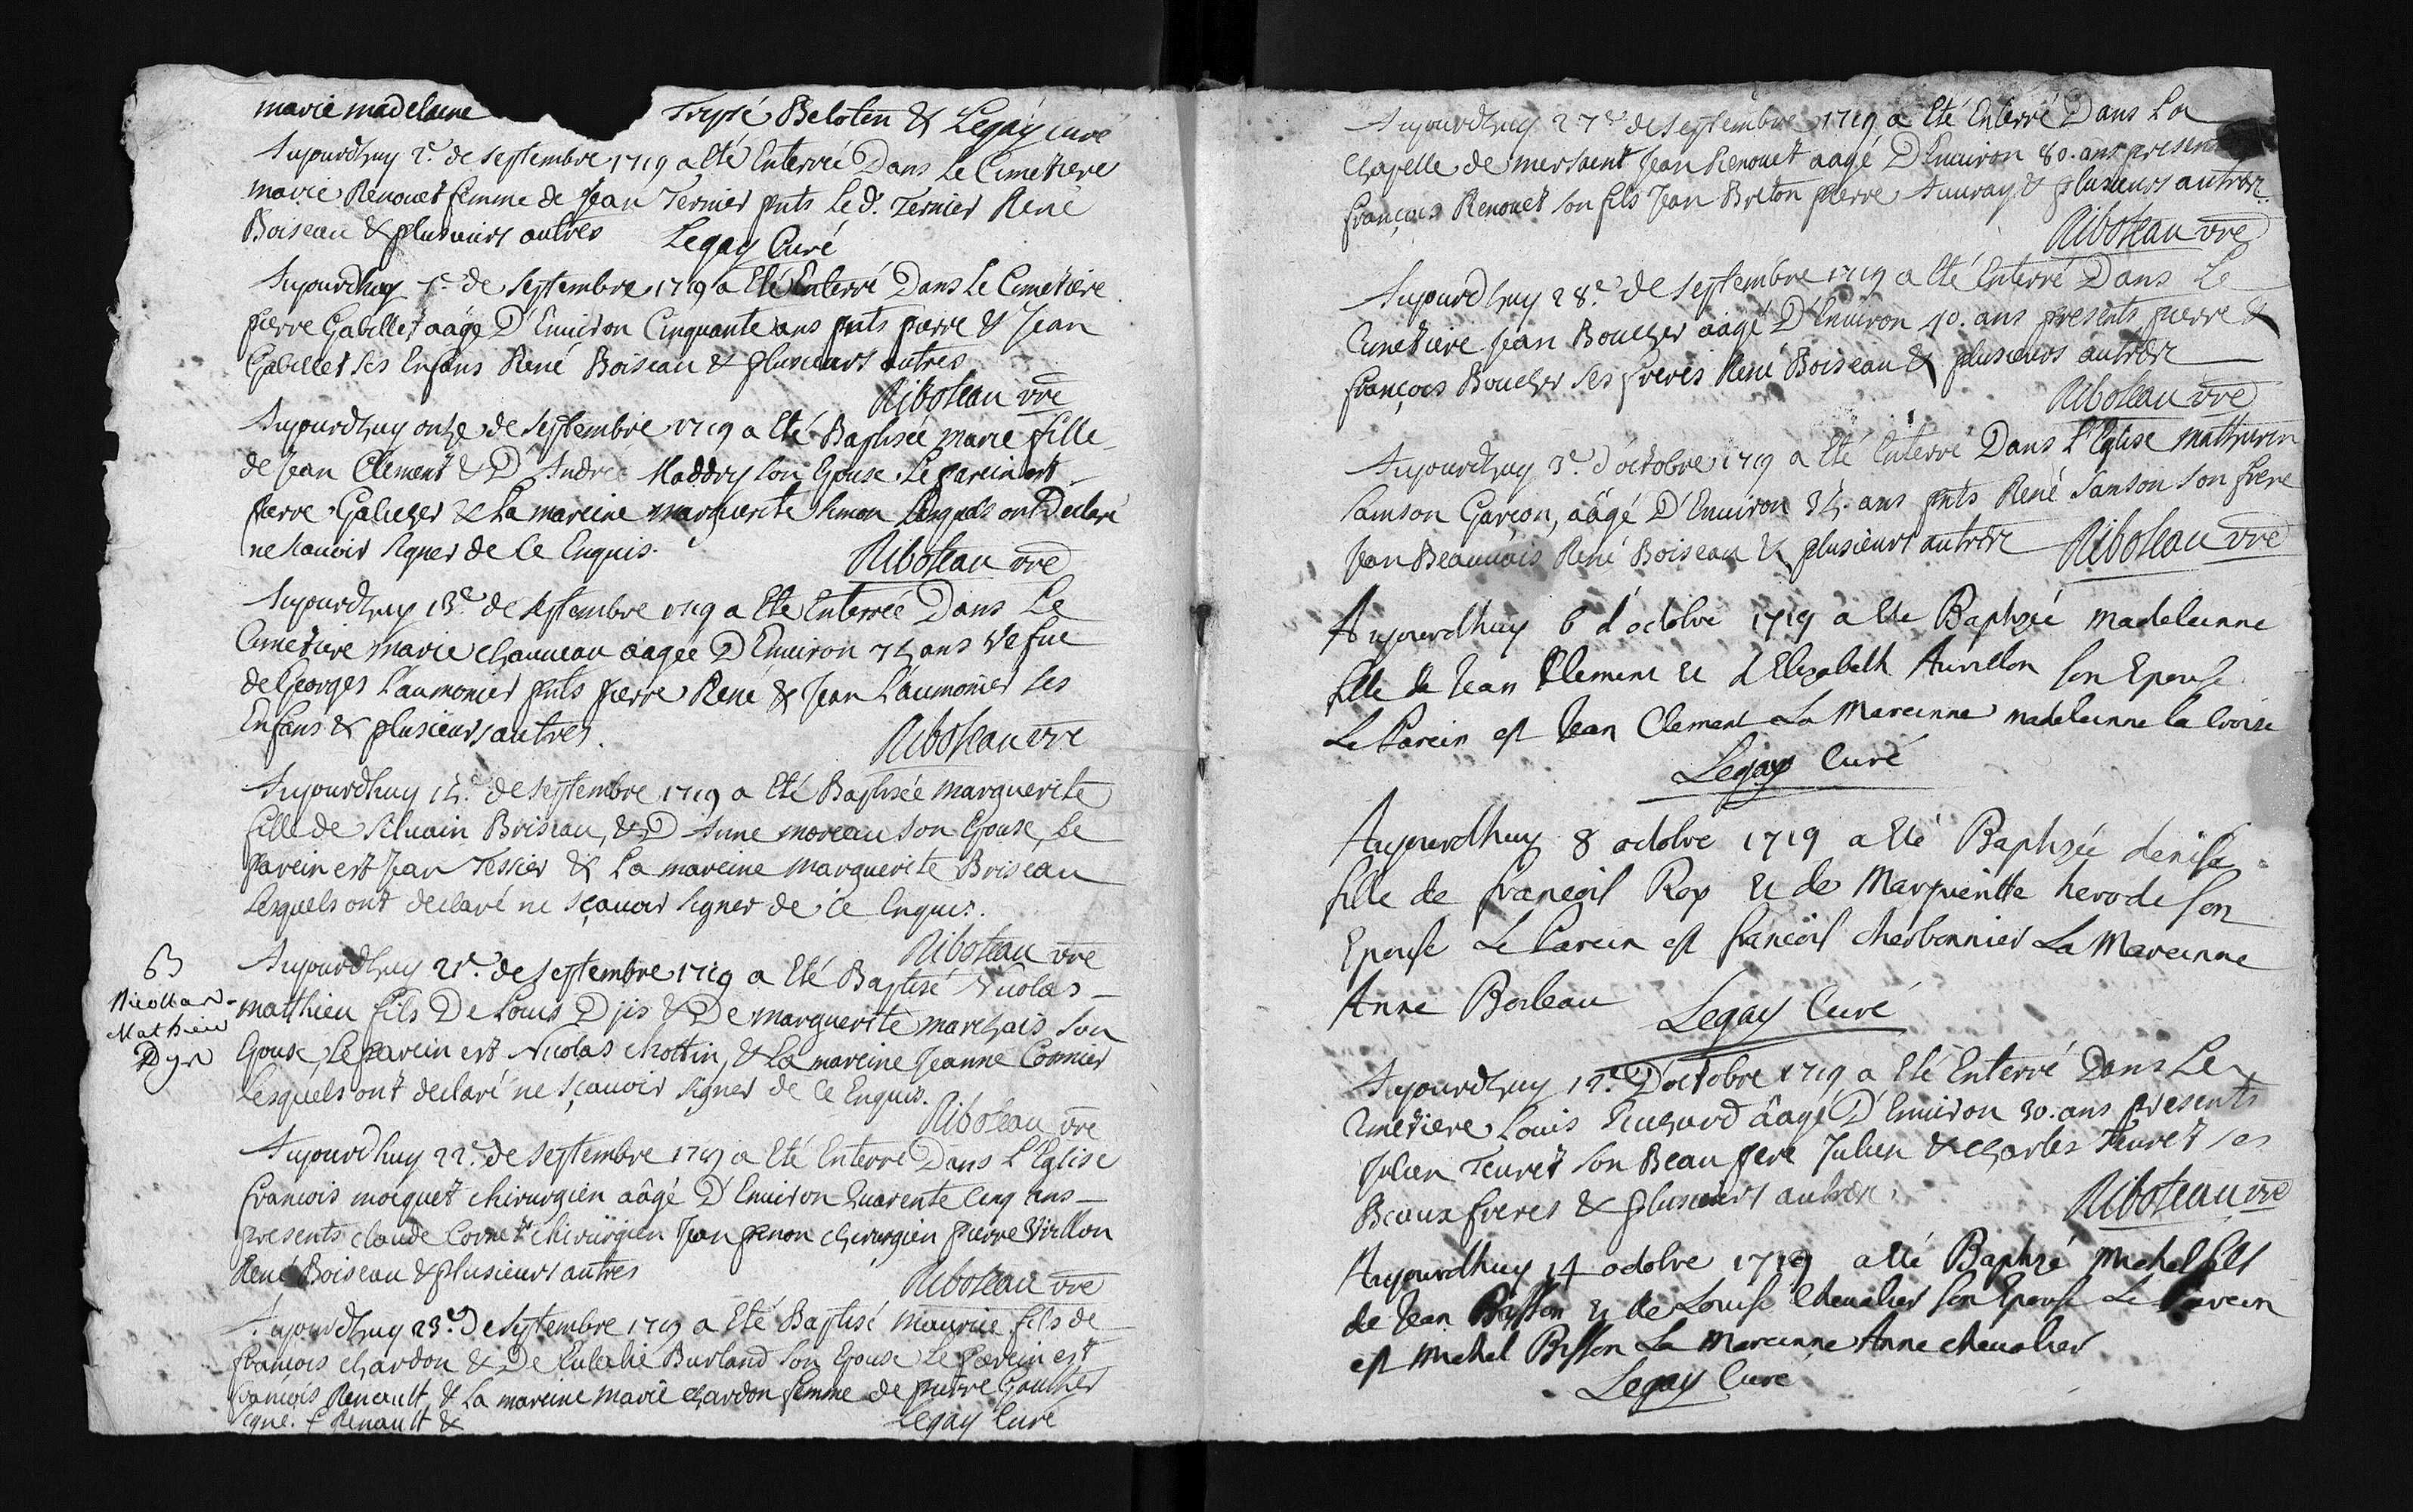 marie madelaine Beloten & Legay curé
Aujourdhuy 2e. de septembre 1719 a Eté Enterrée Dans Le Cimetiere
marie Renouet femme de Jean Ternier pnts Le d. Ternier René
Boiseau & plusieurs autres Legay Curé
Aujourdhuy de septembre 1719 a Eté Enterré Dans Le Cimetiere
pierre Gabillet aâgé D'Environ Cinquante ans pnts pierre & Jean
Gabillet ses Enfans René Boiseau & plusieurs autres
Riboteau vre
Aujourdhuy onze de septembre 1719 a Eté Baptisée marie fille
de Jean Clement & D' Andrée son Epouse Le parein est
pierre & La mareine marguerite Simon Lesquels ont Declaré
ne sçauoir signer de ce Enquis.
Riboteau vre
Aujourdhuy 13e. de septembre 1719 a Eté Enterrée Dans Le
Cimetiere marie chauueau aâgée D'Environ ans Vefue
de Georges Laumonier pnts pierre René & Jean Laumonier ses
Enfans & plusieurs autres.
Riboteau vre
Aujourdhuy de septembre 1719 a Eté Baptisée marguerite
fille de Siluain Briseau, & D'Anne moreau son Epouse, Le
parein est Jean Tessier & La mareine marguerite Briseau
Lesquels ont declaré ne sçauoir signer de ce Enquis.
Riboteau vre
63
Nicollas
Mathieu
Dyn
Aujourdhuy 21e. de septembre 1719 a Eté Baptisé Nicolas
matthieu fils De Louis & De marguerite marchais son
Epouse, Le parein est Nicolas chottin, & La mareine Jeanne Cormier
Lesquels ont declaré ne sçauoir signer de ce Enquis.
Riboteau vre
Aujourdhuy 22e. de septembre 1719 a Eté Enterré Dans L'Eglise
francois moiquet chirurgien aâgé D'Environ Quarente Cinq ans
presents claude Cornet chirurgien Jean penon chirurgien pierre
René Boiseau & plusieurs autres
Riboteau vre
Aujourdhuy 23e. De septembre 1719 a Eté Baptisé maurice fils de
francois chardon & De Eulalie Burland son Epouse Le parein est
francois Renault & La mareine marie chardon femme de pierre Gaultier
signé. f Renault & Legay Curé
Aujourdhuy 27e de septembre 1719 a Eté Enterré Dans La
Chapelle de mersaint Jean Renouet aagé D'Enuiron 80. ans presens
François Renouet son fils Jean Breton pierre Auuray & plusieurs autres
Riboteau vre
Aujourdhuy 28e. de septembre 1719 a Eté Enterré Dans Le
Cimetiere Jean Boucher aâgé D'Enuiron 40. ans presents pierre &
françois Boucher ses freres René Boiseau & plusieurs autres
Riboteau vre
Aujourdhuy 3e. d'octobre 1719 a Eté Enterré Dans L'Eglise Mathurin
Samson Garçon, aâgé D'Enuiron ans pnts René Samson son frere
Jean Beauuais René Boiseau & plusieurs autres Riboteau vre
Aujourdhuy 6 d'octobre 1719 a Ete Baptisée Madeleinne
fille de Jean Clement et d'Elizabeth son Epouse
Le Parein est Jean Clement La Mareinne madeleinne la
Legay Curé
Aujourdhuy 8 octobre 1719 a Eté Baptisée denise
fille de francois Roy et de Marguerittе herode son
Epouse Le Parein est francois cherbonnier La Mareinne
Anne Boileau Legay Curé
Aujourdhuy 12e. D'octobre 1719 a Eté Enterré Dans Le
Cimetiere Louis aâgé D'Enuiron 30. ans presents
Julien Teuret son Beau pere Julien & charles Teuret ses
Beaux freres & plusieurs autres.
Riboteau vre
Aujourdhuy 14 octobre 1719 a Eté Baptisé Michel fils
de Jean Bisson et de Louise Chevalier son Epouse Le Parein
est Michel Bisson La Mareinne Anne chevalier
Legay Curé